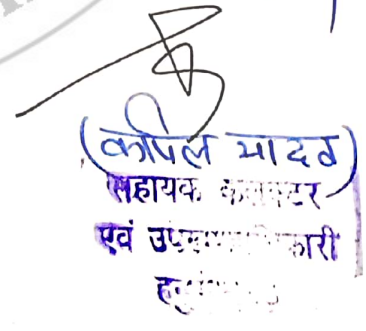 (कपिल यादव)
सहायक कलक्टर
एवं उपखण्ड अधिकारी